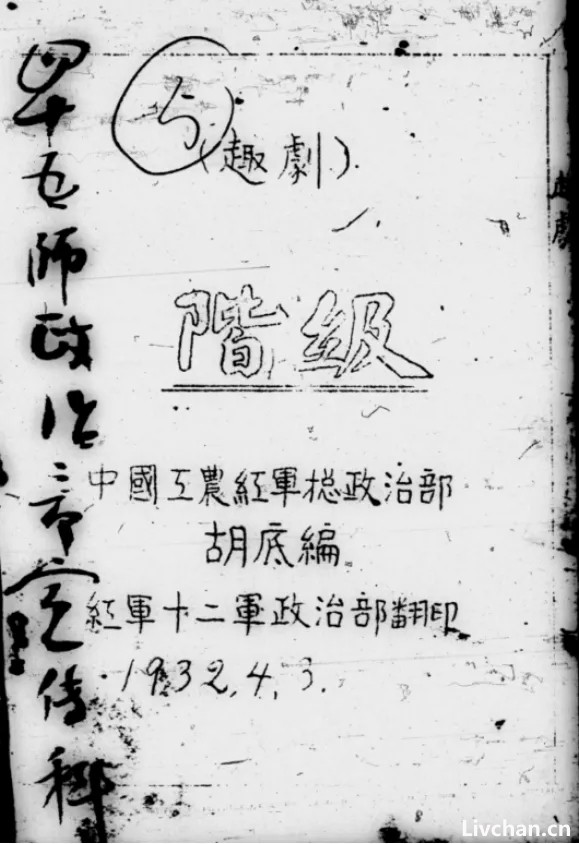 5
(趣劇)
階級
中國工農紅軍捴政治部
胡底編
紅軍十二軍政治部翻印
1932.4.3.
四十五師政治部宣傳科
趣劇
Livchan.cn